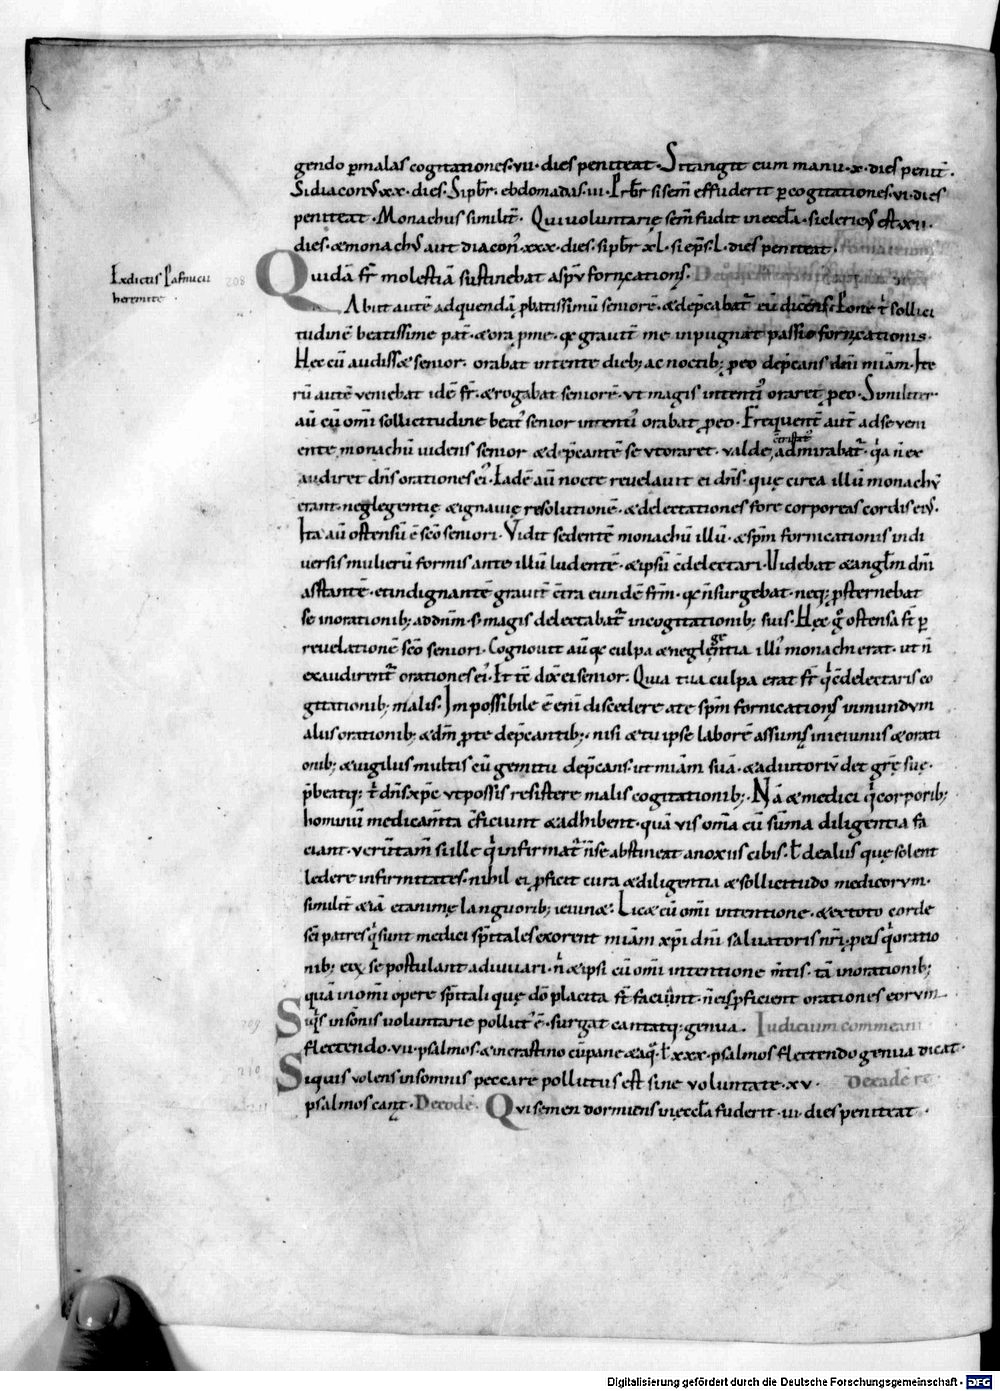 gendo ꝑ malas cogitationes · vii · dies peniteat · Si tangit cum manu · x · dies penit̄ ·
Si diaconꝰ xx · dies · Si p̄br̄ · ebdomadas · iii · P̄rbr̄ si sem̄ effuderit ꝑ cogitationes · vi · dies
peniteat · Monachus similit̄ · Qui voluntarię sem̄ fudit in eccl̄a · si clericꝰ est · xiiii ·
dies · & monachꝰ aut diacon̄ · xxx · dies · si p̄br̄ xl · si ep̄s · l · dies peniteat ·
Quidā fr̄ molestiā sustinebat a sp̄u fornicationis ·
Exdictus Pafnucii
heremite ·
208
Abiit autē ad quendā ꝓbatissimū seniorē · & dep̄cabat᷑ eū dicens · Pone t̄ sollici
tudinē beatissime pat̄ · & ora ꝓ me · qꝛ grauit̄ me inpugnat passio fornicationis ·
Hec cū audiss& senior · orabat intente dieb; ac noctib; ꝓ eo dep̄cans dn̄i miā̄m · Ite
rū autē veniebat idē fr̄ · & rogabat seniorē · vt magis intentiꝰ oraret ꝓ eo · Similiter ·
aū cū om̄i sollicitudine beatꝰ senior intentiꝰ orabat ꝓ eo · Frequent̄ aut̄ ad se veni
ente monachū uidens senior & dep̄cantē se vt oraret · valde admirabat᷑ · qͥa n̄ ex
audiret dn̄s orationes eiꝰ · Eadē aū nocte reuelauit ei dn̄s · quę circa illū monachū
erant · neglegentię & ignauię resolutionē · & delectationes fore corporeas cordis eiꝰ ·
Ita aū ostensū ē sc̄o seniori · Vidit sedentē monachū illū · & sp̄m fornicationis in di
uersis mulierū formis ante illū ludentē · & ipsū c̄delectari · Uidebat & angl̄m dn̄i
astantē · & indignantē grauit̄ c̄tra eundē fr̄m · qꝛ n̄ surgebat · neqꝫ ꝓsternebat
se in orationib; ad dn̄m · s; magis delectabat᷑ in cogitationib; suis · Hęc gͦ ostensa st̄ ꝑ
reuelationē sc̄o seniori · Cognouit aū qꝛ culpa & neglegentia illiꝰ monachi erat · ut n̄
exaudirent᷑ orationes eiꝰ · Et t̄c dix̄ ei senior · Quia tua culpa erat fr̄ qͥ c̄delectaris co
gitationib; malis · Impossibile ē eni̅ discedere a te sp̄m fornicationis inmundum
aliis orationib; & dm̄ ꝓ te dep̄cantib; · nisi & tu ipse laborē assumis in ieiuniis & orati
onib; & vigiliis multis cū gemitu dep̄cans · ut miā̄m suā · & adiutoriū det grę̄ suę ·
p̄beatqꝫ t̄ dn̄s xp̄c vt possis resistere malis cogitationib; · Nā & medici qͥ corporib;
hominū medicam̄ta c̄ficiunt & adhibent · quā vis om̄a cū sum̄a diligentia fa
ciant · verūtam̄ si ille qͥ infirmat᷑ n̄ se abstineat a noxiis cibis · l̄ de aliis quę solent
ledere infirmitates · nihil ei ꝓficit cura & diligentia & sollicitudo medicorum ·
similit̄ & iā et animę languorib; ieiun& · Lic& cū om̄i intentione · & ex toto corde
sc̄i patres qͥ sunt medici sp̄itales exorent miā̄m xp̄i dn̄i saluatoris nr̄i · ꝓ eis qͥ oratio
nib; eiꝝ se postulant adiuuari · n̄ & ipsi cū om̄i intentione m̄tis · tā in orationib;
quā in om̄i opere sp̄itali quę dō placita st̄ faciunt · n̄ eis ꝓficient orationes eorum ·
209
Si qͥs in som̄is voluntarie pollutꝰ ē · surgat cantatqꝫ · genua · Iudicium commeani
flectendo · vii · psalmos · & in crastino cū pane & aq̄ · l̄ xxx · psalmos flectendo genua dicat ·
210
Si quis volens in somnis peccare pollutus est sine voluntate · xv · De eadē re
psalmos cant̄ · De eodē · Qui semen dormiens in eccl̄a fuderit · iii · dies peniteat ·
Digitalisierung gefördert durch die Deutsche Forschungsgemeinschaft - DFG